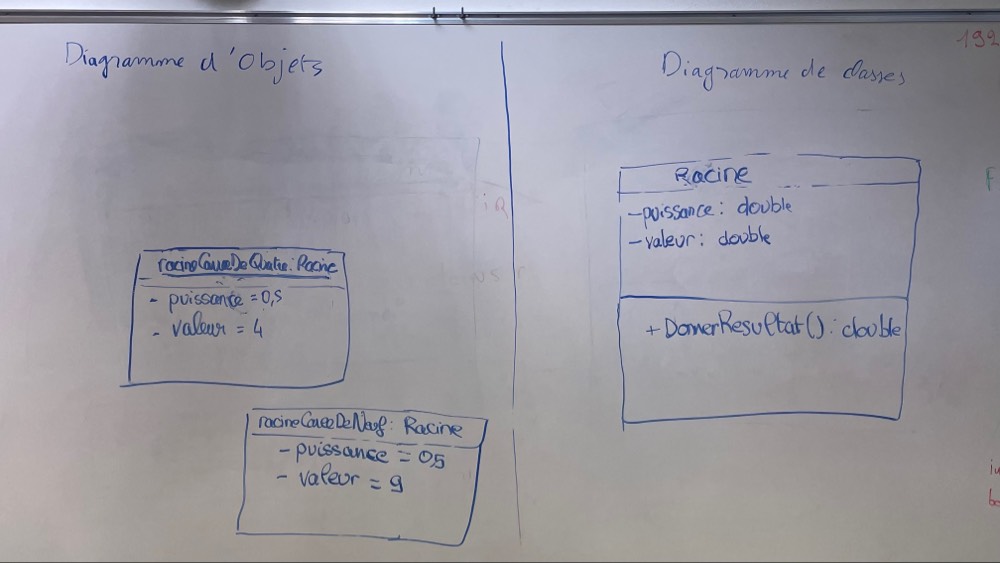 Diagramme d'Objets
racineCarreeDeQuatre: Racine
- puissance = 0,5
- valeur = 4
racineCarreeDeNeuf: Racine
- puissance = 0,5
- valeur = 9
192
Diagramme de classes
Racine
- puissance: double
- valeur: double
+ DonnerResultat(): double